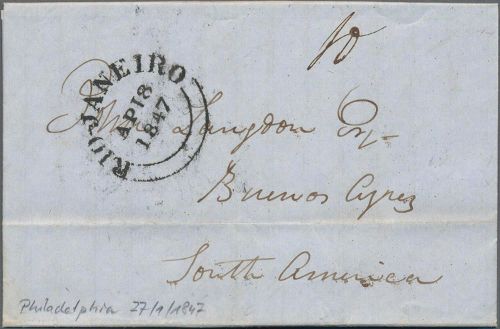 10
RIO JANEIRO
AP18
1847
John Langdon Esq
Buenos Ayres
South America
Philadelphia 27/1/1847